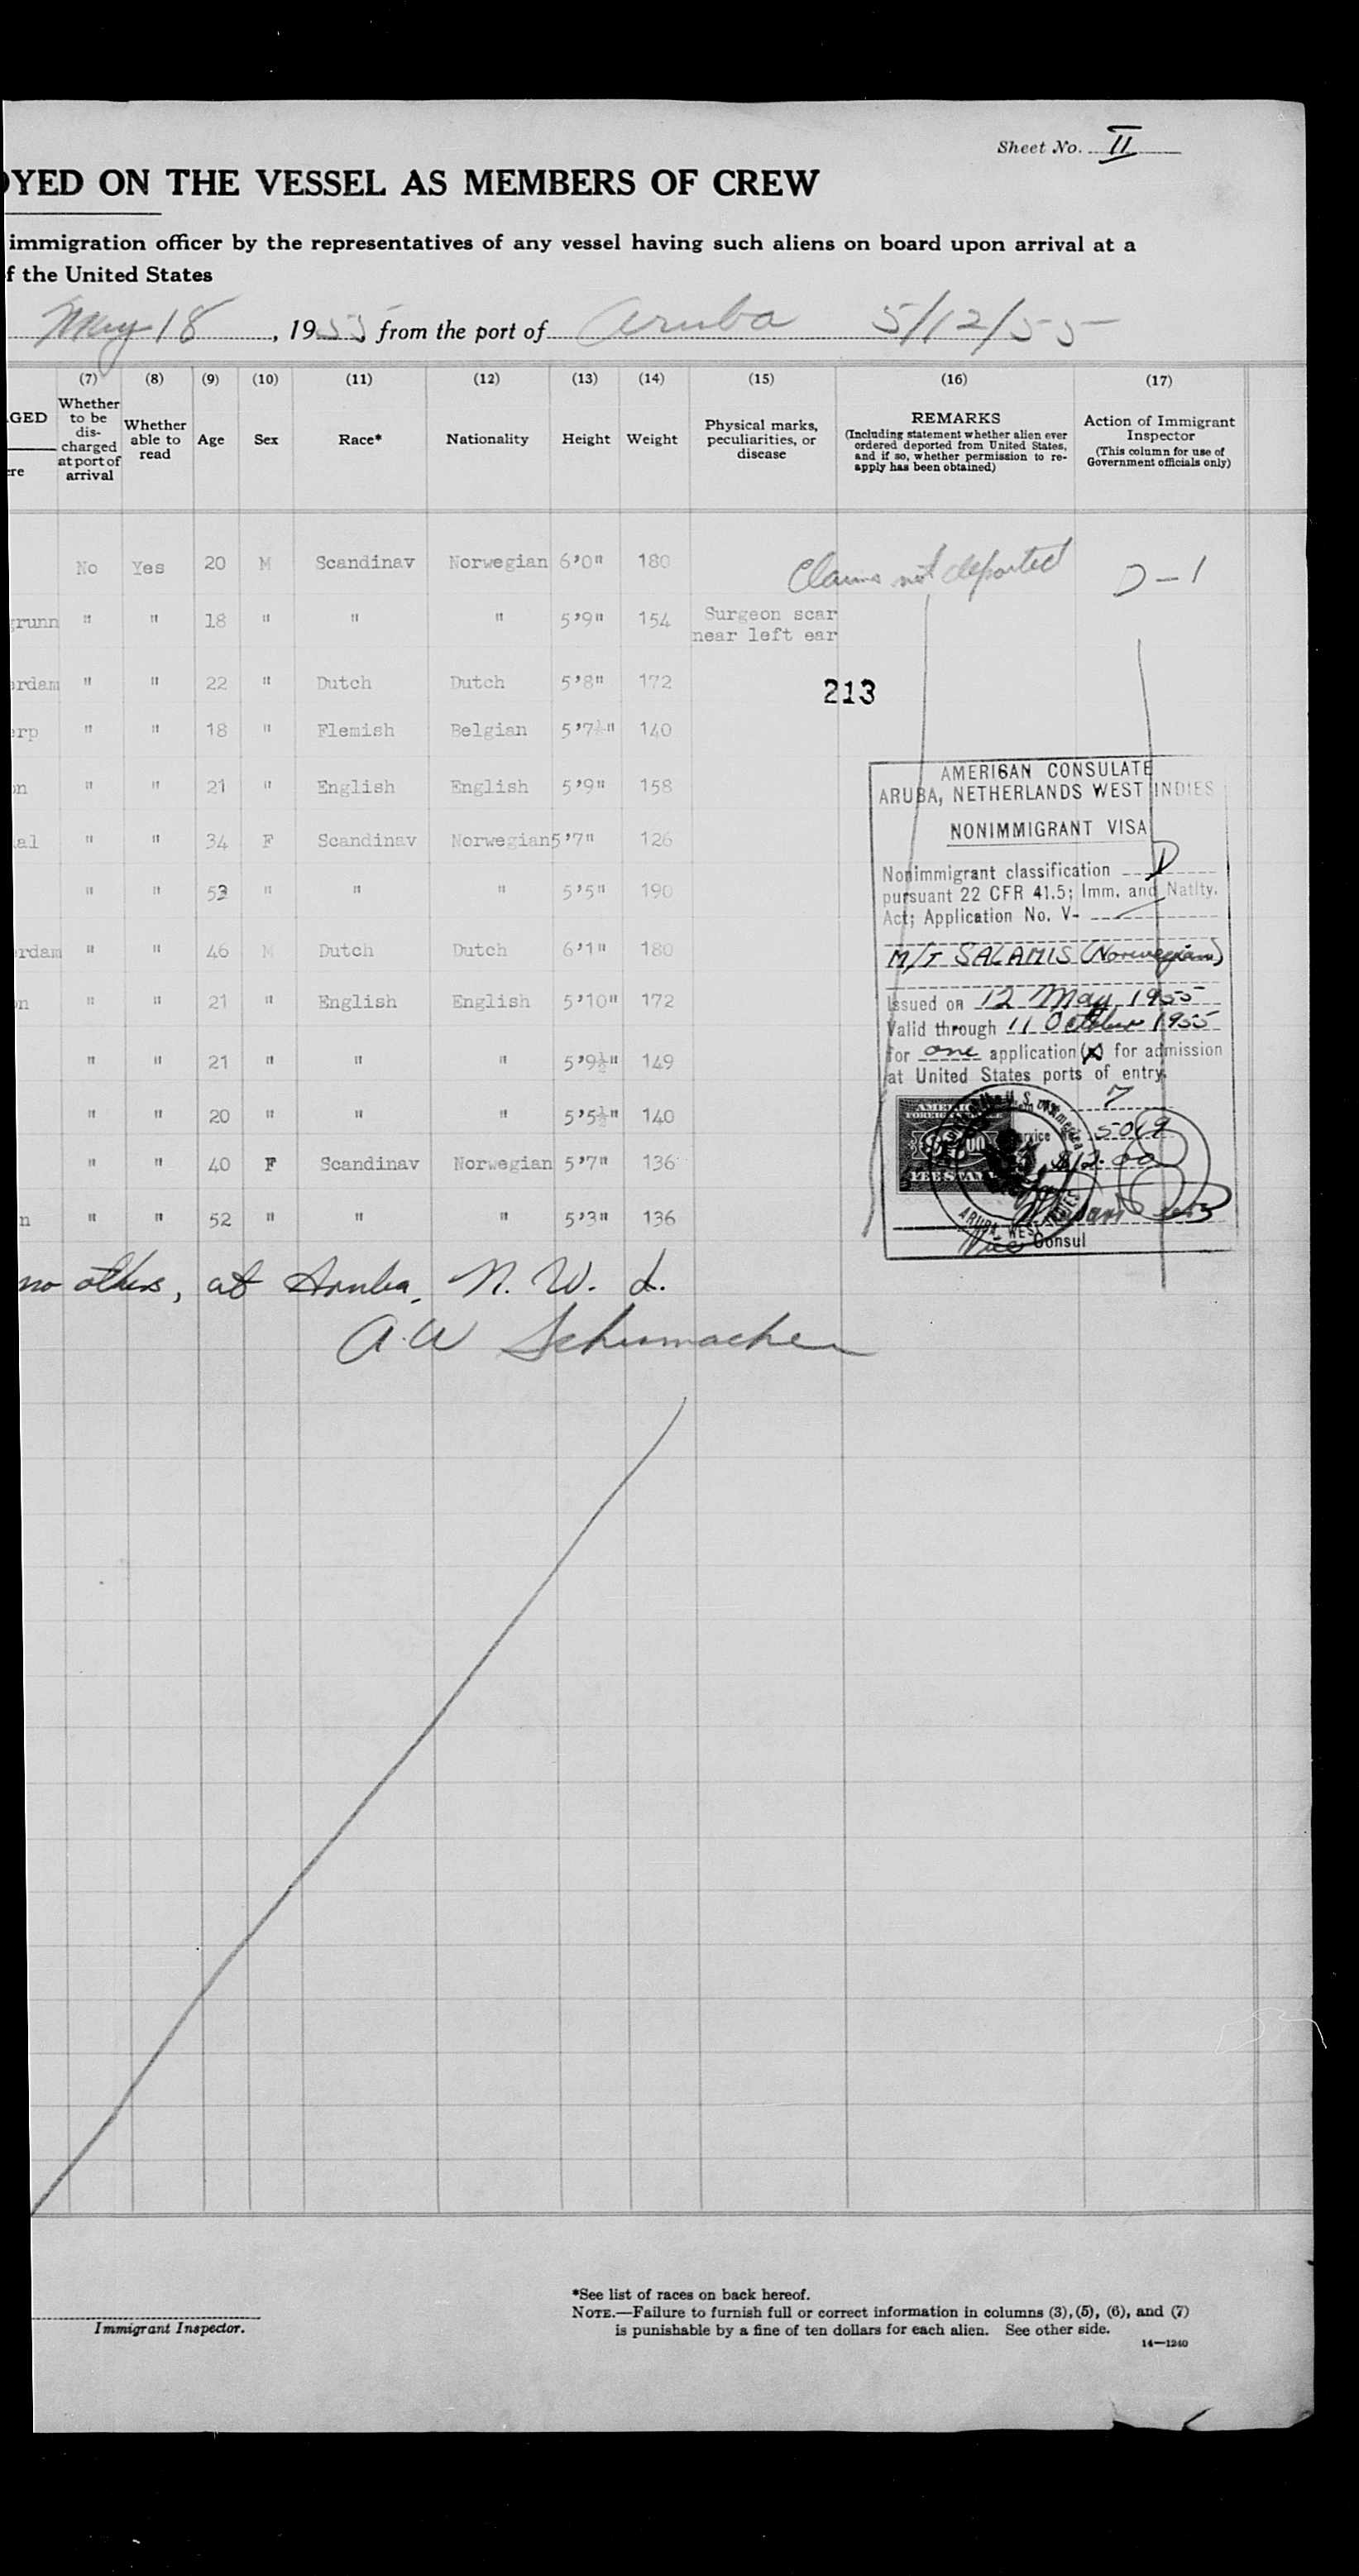 Sheet No. II
OYED ON THE VESSEL AS MEMBERS OF CREW
immigration officer by the representatives of any vessel having such aliens on board upon arrival at a
f the United States
May 18, 1955 from the port of Aruba 5/12/55
(7) (8) (9) (10) (11) (12) (13) (14) (15) (16) (17)
GED
ere
Whether to be discharged at port of arrival
Whether able to read
Age
Sex
Race*
Nationality
Height
Weight
Physical marks, peculiarities, or disease
REMARKS
(Including statement whether alien ever
ordered deported from United States,
and if so, whether permission to re-
apply has been obtained)
Action of Immigrant
Inspector
(This column for use of
Government officials only)
No Yes 20 M Scandinav Norwegian 6'0" 180 Claims not deported D-1
grunn " " 18 " " " 5'9" 154 Surgeon scar
near left ear
erdam " " 22 " Dutch Dutch 5'8" 172
213
erp " " 18 " Flemish Belgian 5'7½" 140
on " " 21 " English English 5'9" 158
al " " 34 F Scandinav Norwegian 5'7" 126
" " 53 " " " 5'5" 190
erdam " " 46 M Dutch Dutch 6'1" 180
on " " 21 " English English 5'10" 172
" " 21 " " " 5'9½" 149
" " 20 " " " 5'5½" 140
" " 40 F Scandinav Norwegian 5'7" 136
n " " 52 " " " 5'3" 136
AMERICAN CONSULATE
ARUBA, NETHERLANDS WEST INDIES
NONIMMIGRANT VISA
Nonimmigrant classification D
pursuant 22 CFR 41.5; Imm. and Natlty.
Act; Application No. V-
M/T SALAMIS (Norwegian)
Issued on 12 May 1955
Valid through 11 October 1955
for one application(x) for admission
at United States ports of entry.
7
Service 5019
$12.00
FEE STAMP
ARUBA, WEST INDIES
Vice Consul
no others, at Aruba, N. W. I.
A. W Schumacher
Immigrant Inspector.
*See list of races on back hereof.
NOTE.—Failure to furnish full or correct information in columns (3), (5), (6), and (7)
is punishable by a fine of ten dollars for each alien. See other side.
14—1240